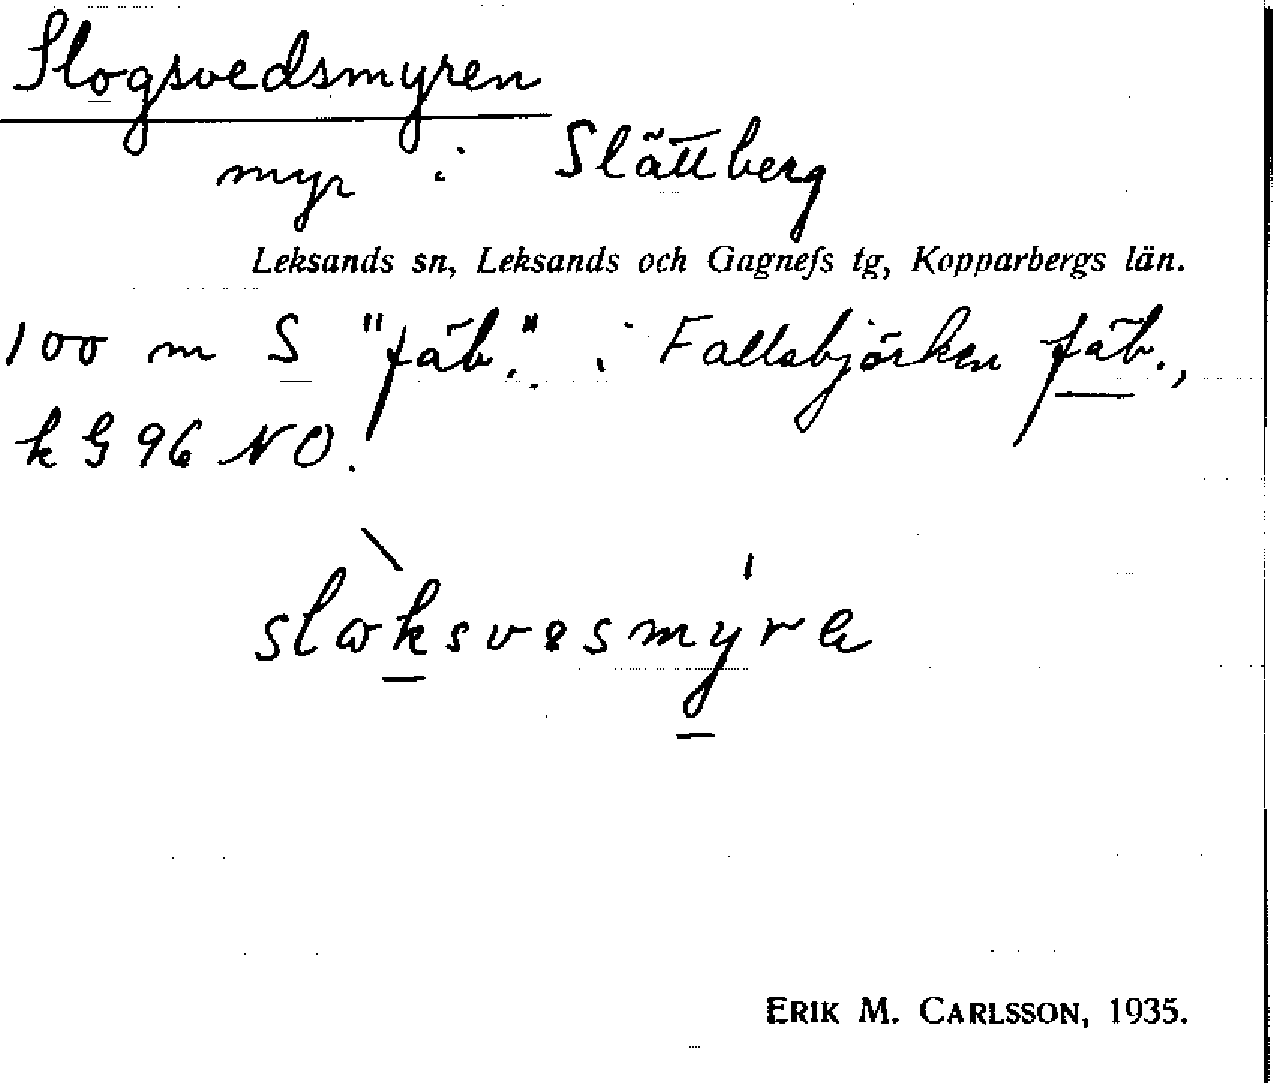 Slogsvedsmyren
myr i Slättberg
Leksands sn, Leksands och Gagnefs tg, Kopparbergs län.
100 m S "fäb." i Fallsbjörken fäb.,
k G 96 NO.
slɷksvɛsmyra
ERIK M. CARLSSON, 1935.